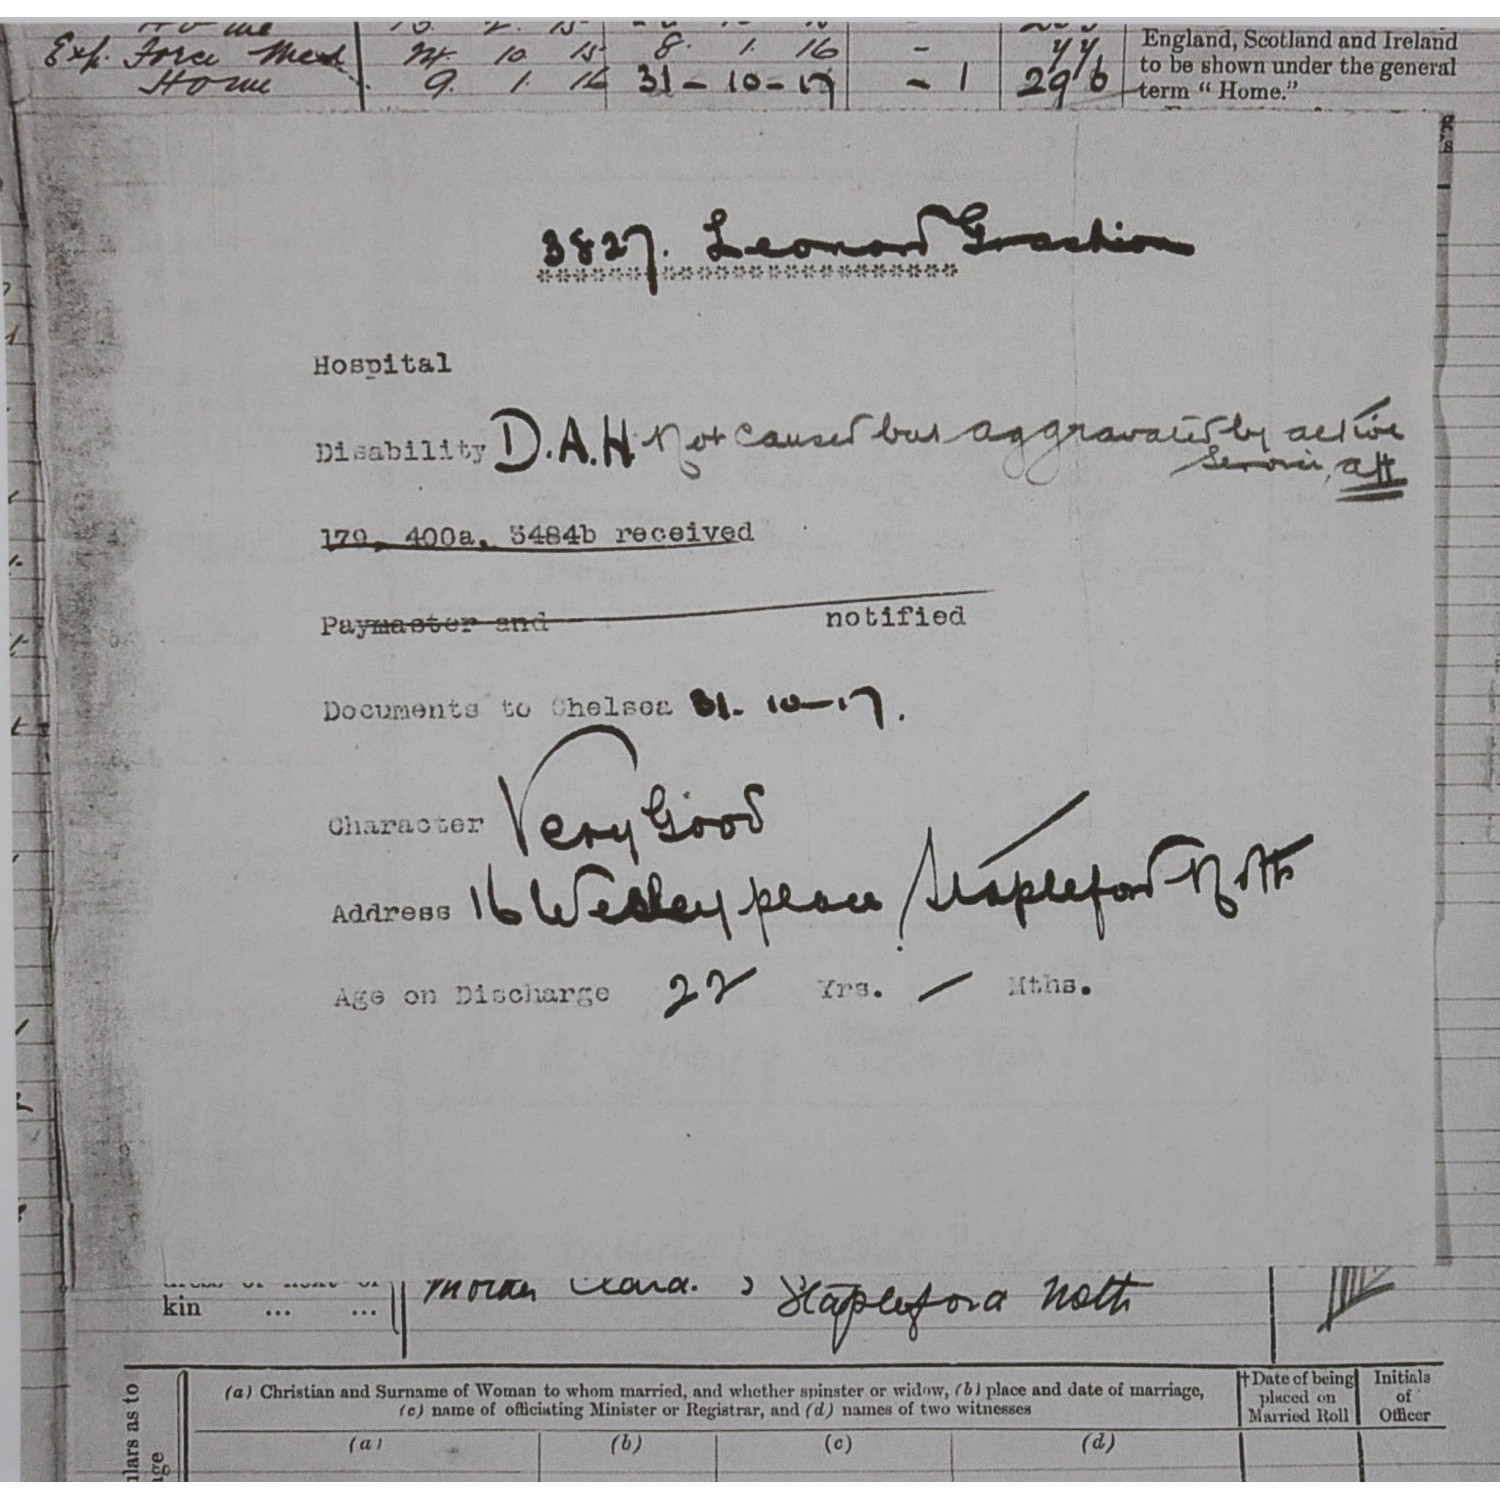 Home
Exp. Force Med 24. 10 15 8. 1. 16 - 77
Home 9. 1. 16 31-10-17 - 1 296
England, Scotland and Ireland
to be shown under the general
term “Home.”
3827. Leonard Grashion
Hospital
Disability D.A.H Not caused but aggravated by active
Service, att
179, 400a, 3484b received
Paymaster and notified
Documents to Chelsea 31-10-17.
Character Very Good
Address 16 Wesley place Stapleford Notts
Age on Discharge 22 Yrs. / Mths.
kin ... ... Mother Clara. Stapleford Notts
(a) Christian and Surname of Woman to whom married, and whether spinster or widow, (b) place and date of marriage,
(c) name of officiating Minister or Registrar, and (d) names of two witnesses
†Date of being
placed on
Married Roll
Initials
of
Officer
(a) (b) (c) (d)